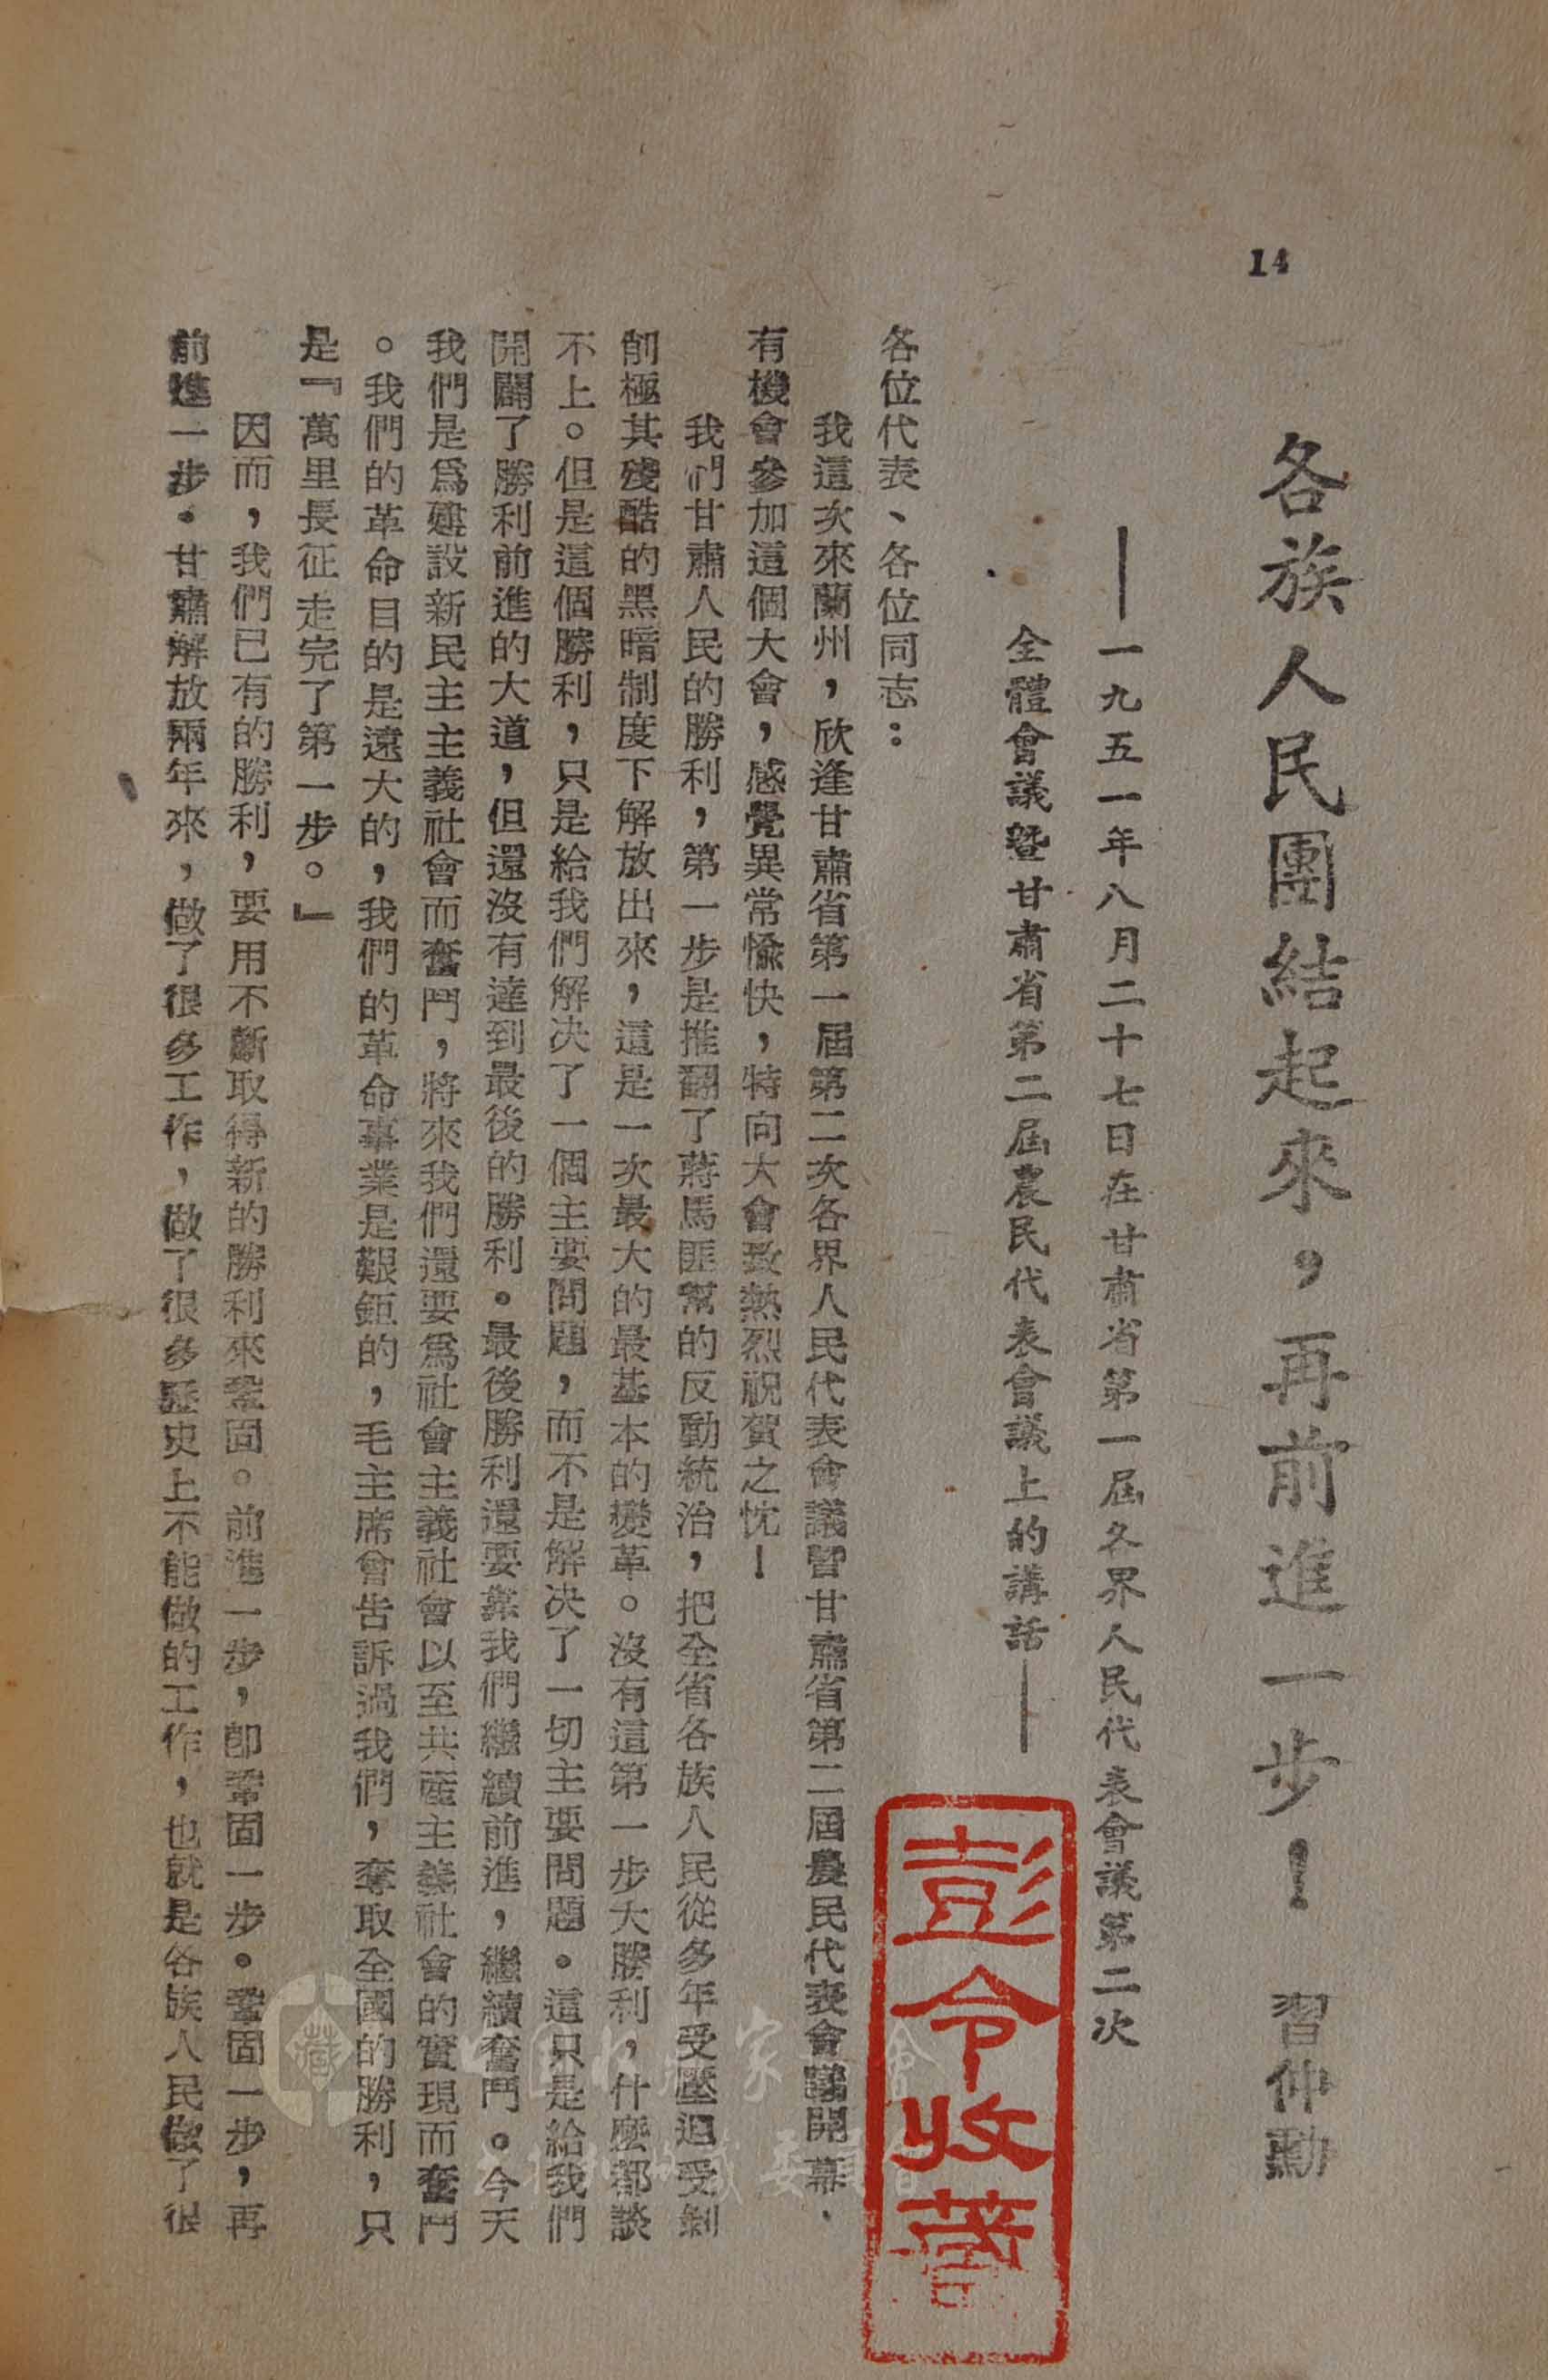 14
各族人民團結起來，再前進一步！　習仲勳
——一九五一年八月二十七日在甘肅省第一屆各界人民代表會議第二次
全體會議暨甘肅省第二屆農民代表會議上的講話——
各位代表、各位同志：
我這次來蘭州，欣逢甘肅省第一屆第二次各界人民代表會議暨甘肅省第二屆農民代表會議開幕，
有機會參加這個大會，感覺異常愉快，特向大會致熱烈祝賀之忱！
我們甘肅人民的勝利，第一步是推翻了蔣馬匪幫的反動統治，把全省各族人民從多年受壓迫受剝
削極其殘酷的黑暗制度下解放出來，這是一次最大的最基本的變革。沒有這第一步大勝利，什麼都談
不上。但是這個勝利，只是給我們解決了一個主要問題，而不是解決了一切主要問題。這只是給我們
開闢了勝利前進的大道，但還沒有達到最後的勝利。最後勝利還要靠我們繼續前進，繼續奮鬥。今天
我們是爲建設新民主主義社會而奮鬥，將來我們還要爲社會主義社會以至共產主義社會的實現而奮鬥
。我們的革命目的是遠大的，我們的革命事業是艱鉅的，毛主席會告訴過我們，奪取全國的勝利，只
是『萬里長征走完了第一步。』
因而，我們已有的勝利，要用不斷取得新的勝利來鞏固。前進一步，卽鞏固一步。鞏固一步，再
前進一步。甘肅解放兩年來，做了很多工作，做了很多歷史上不能做的工作，也就是各族人民做了很
彭令收藏